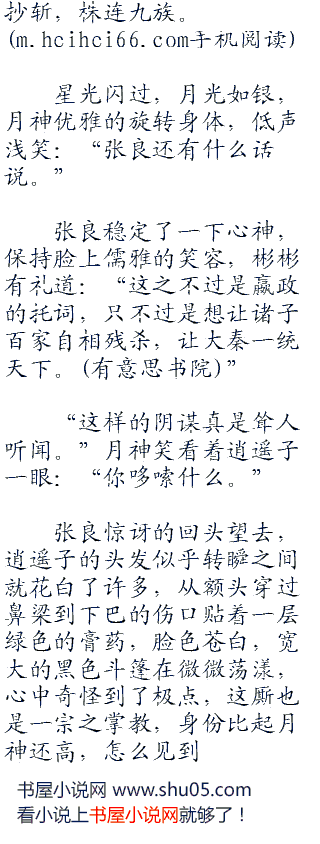 抄斩，株连九族。
(m.hcihci66.com手机阅读)
星光闪过，月光如银，
月神优雅的旋转身体，低声
浅笑：“张良还有什么话
说。”
张良稳定了一下心神，
保持脸上儒雅的笑容，彬彬
有礼道：“这之不过是嬴政
的托词，只不过是想让诸子
百家自相残杀，让大秦一统
天下。(有意思书院)”
“这样的阴谋真是耸人
听闻。”月神笑看着逍遥子
一眼：“你哆嗦什么。”
张良惊讶的回头望去，
逍遥子的头发似乎转瞬之间
就花白了许多，从额头穿过
鼻梁到下巴的伤口贴着一层
绿色的膏药，脸色苍白，宽
大的黑色斗篷在微微荡漾，
心中奇怪到了极点，这厮也
是一宗之掌教，身份比起月
神还高，怎么见到
书屋小说网 www.shu05.com
看小说上书屋小说网就够了！